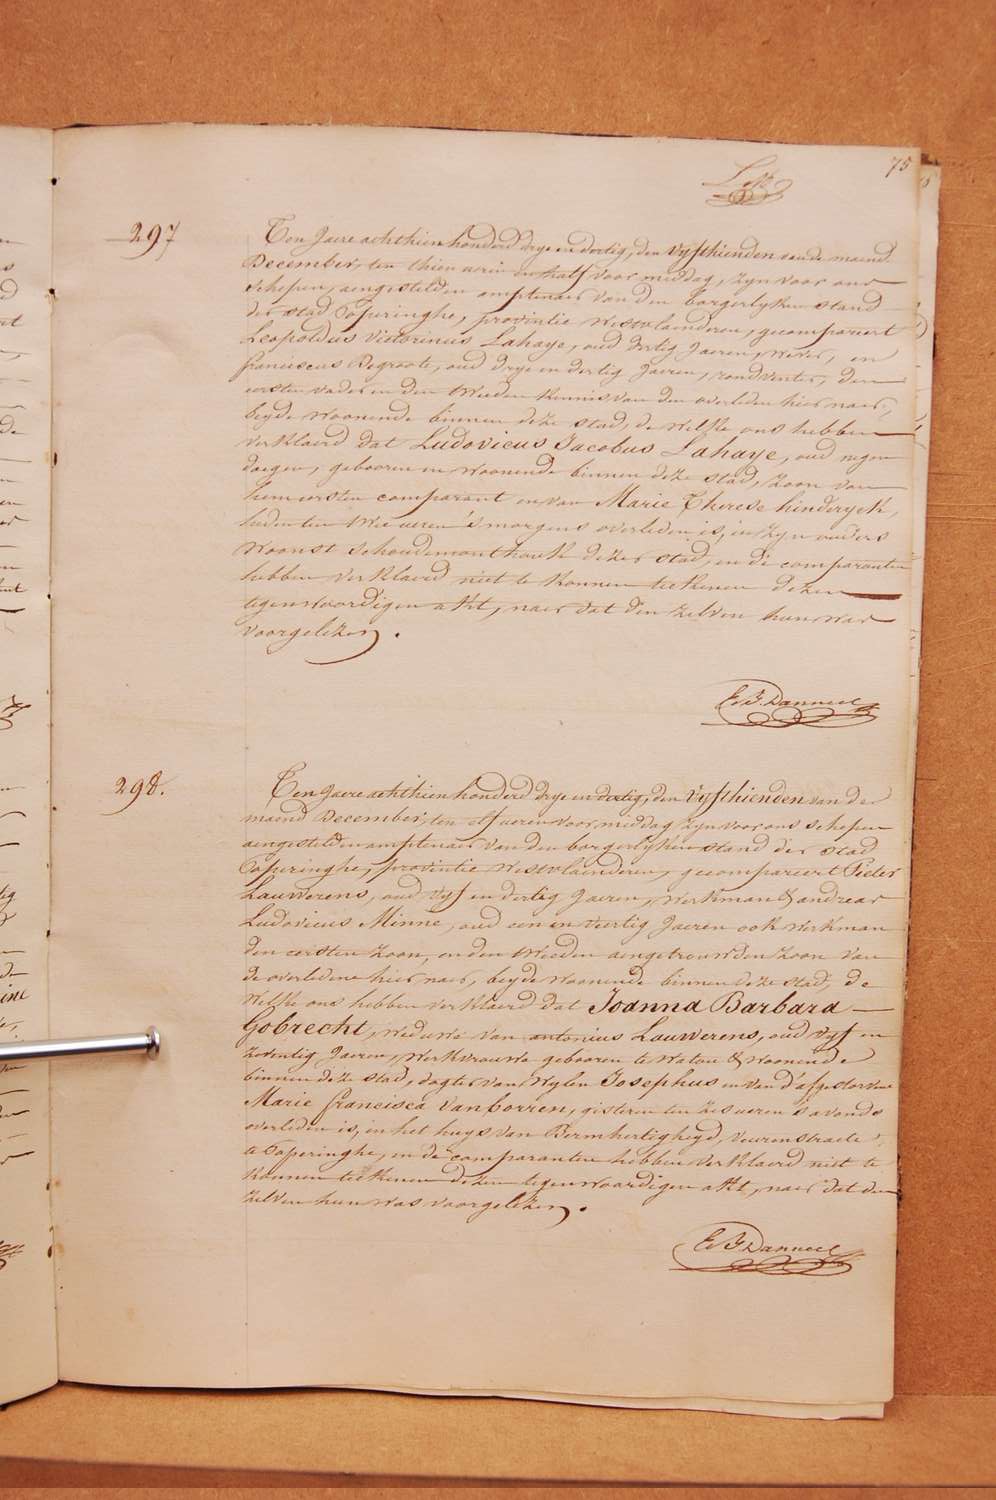 75
297
Ten Jaere achthien honderd drye en dertig, den vyfthienden van de maend
December, ten thien uren en half voor middag, zyn voor ons
schepen, aengestelden amptenaer van den borgerlyken stand
der stad Poperinghe, provintie Westvlaenderen, gecompareert
Leopoldus Victorinus Lahaye, oud dertig Jaeren, wever, en
franciscus Degroote, oud drye en dertig Jaeren, den
eersten vader en den tweeden kennis van den overleden hier naer,
beyde woonende binnen deze stad, de welke ons hebben
verklaerd dat Ludovicus Jacobus Lahaye, oud negen
daegen, gebooren en woonende binnen deze stad, zoon van
hem eersten comparant en van Marie Therese hinderyck,
heden ten twee ueren 's morgens overleden is, in zyn ouders
woonst schoudemonthoek dezer stad, en de comparanten
hebben verklaerd niet te konnen teekenen dezen
tegenwoordigen akt, naer dat den zelven hun was
voorgelezen.
E. F. Danneel
298.
Ten Jaere achthien honderd drye en dertig, den vyfthienden van de
maend December, ten elf ueren voor middag zyn voor ons schepen
aengestelden amptenaer van den borgerlyken stand der stad
Poperinghe, provintie Westvlaenderen, gecompareert Pieter
Lauwerens, oud vyf en dertig Jaeren, werkman & andreas
Ludovicus Minne, oud een en veertig Jaeren ook werkman
den eersten zoon, en den tweeden aengetrouwden zoon van
de overledene hier naer, beyde woonende binnen deze stad, de
welke ons hebben verklaerd dat Joanna Barbara
Gobrecht, weduwe van antonius Lauwerens, oud vyf en
zeventig Jaeren, werkvrouwe gebooren te Watou & woonende
binnen deze stad, dogter van wylen Josephus en van d'afgestorvene
Marie francisca Vanborren, gisteren ten zes ueren 's avonds
overleden is, in het huys van Bermhertigheyd, veurenstraete
te Poperinghe, en de comparanten hebben verklaerd niet te
konnen teekenen dezen tegenwoordigen akt, naer dat den
zelven hun was voorgelezen.
E. F. Danneel